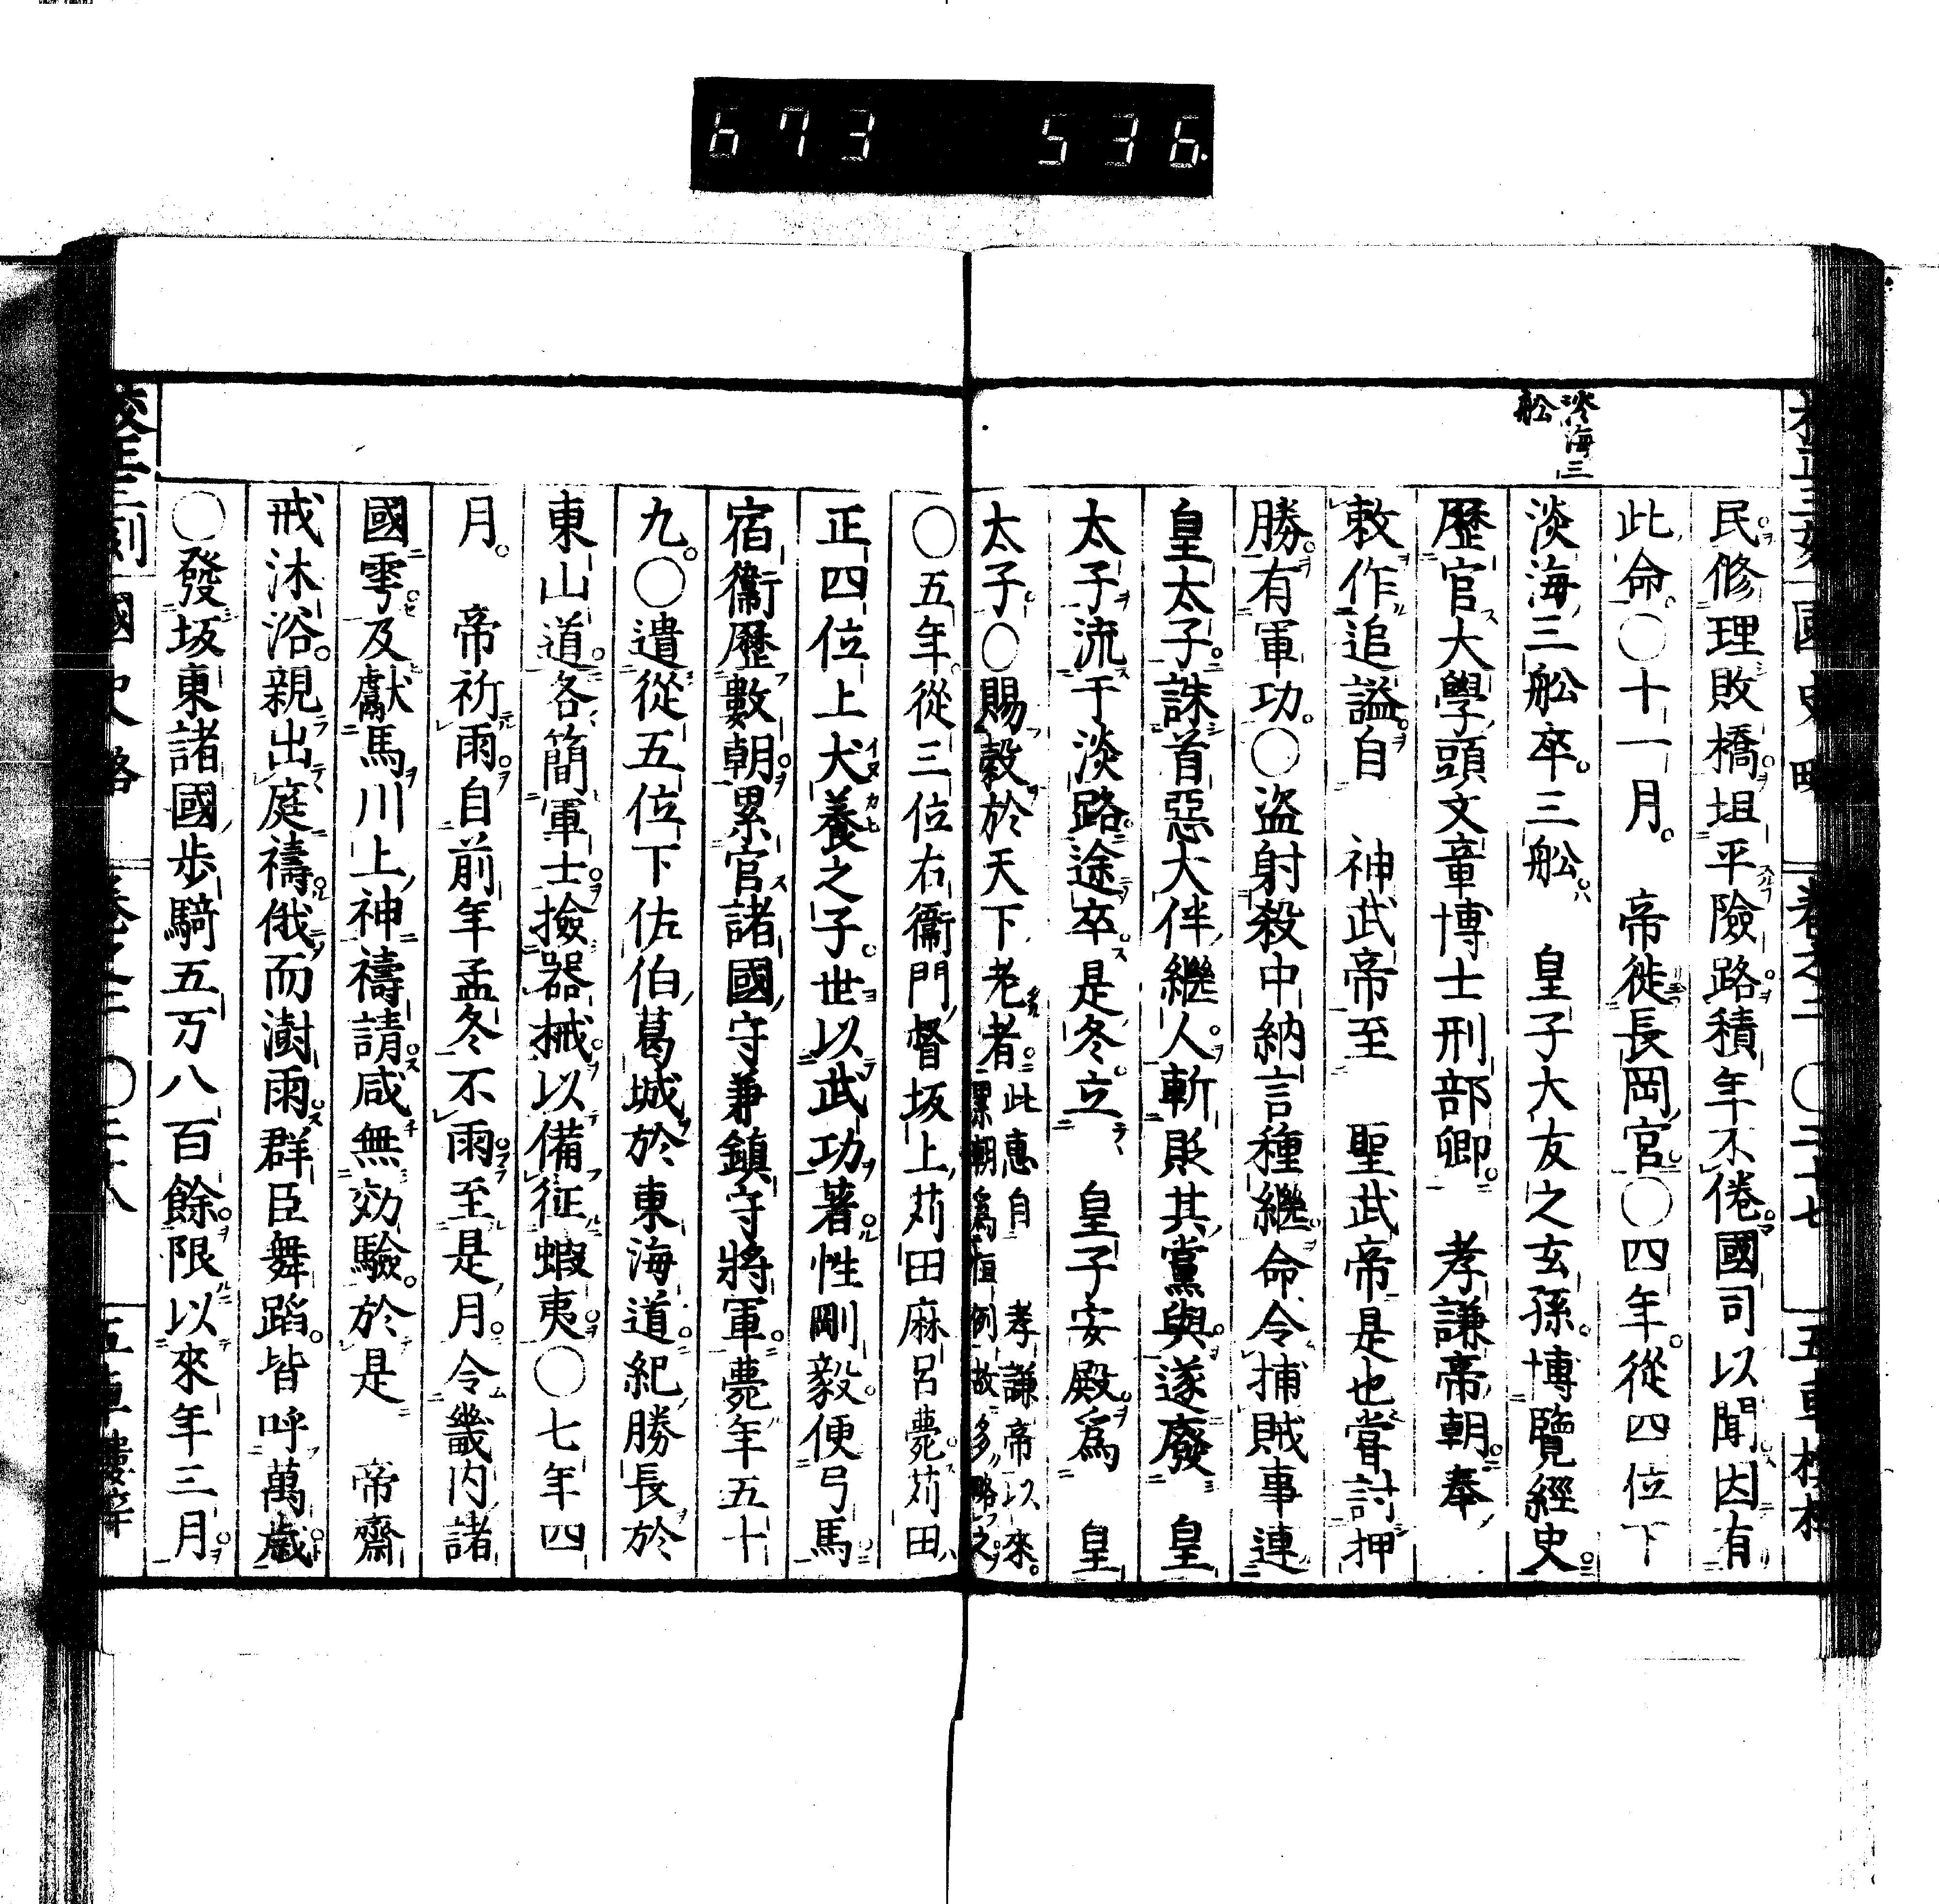 673 536
淡海三
舩
民修理敗橋坦平險路積年不倦國司以聞因有
此命○十一月帝徙長岡宮○四年從四位下
淡海三舩卒三舩皇子大友之玄孫博覽經史
歷官大學頭文章博士刑部卿孝謙帝朝奉
敕作追謚自神武帝至聖武帝是也嘗討押
勝有軍功○盜射殺中納言種繼命令捕賊事連
皇太子誅首惡大伴繼人斬貶其黨與遂廢皇
太子流于淡路途卒是冬立皇子安殿爲皇
太子○賜穀於天下老者此惠自孝謙帝以來
累朝爲恒例故多略之
○五年從三位右衞門督坂上苅田麻呂薨苅田
正四位上犬養之子世以武功著性剛毅便弓馬
宿衞歷數朝累官諸國守兼鎮守將軍薨年五十
九○遣從五位下佐伯葛城於東海道紀勝長於
東山道各簡軍士撿器械以備征蝦夷○七年四
月帝祈雨自前年孟冬不雨至是月令畿内諸
國雩及獻馬川上神禱請咸無効驗於是帝齋
戒沐浴親出庭禱俄而澍雨群臣舞蹈皆呼萬歲
○發坂東諸國步騎五万八百餘限以來年三月